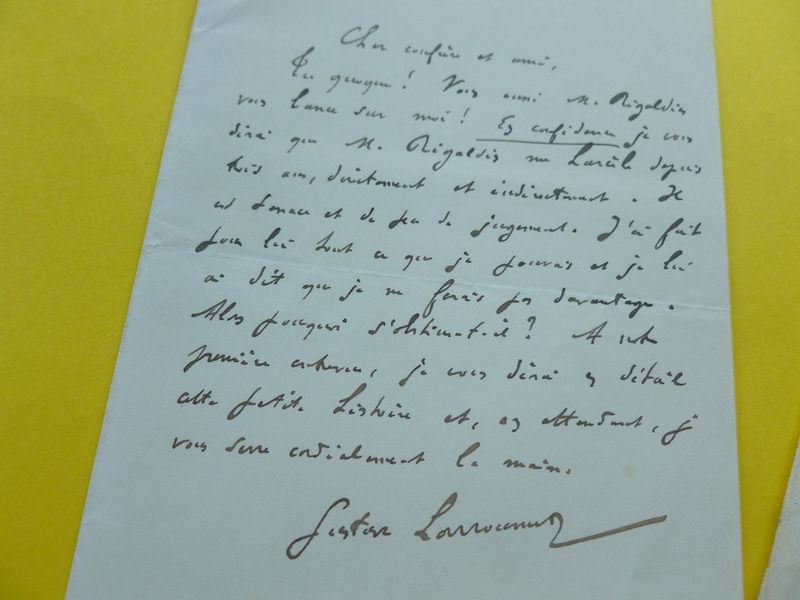 Cher confrère et ami,
Tu quoque ! Vous aussi M. Rigaldis
vous lance sur moi ! En confidence je vous
dirai que M. Rigaldis me harcèle depuis
trois ans, directement et indirectement. Il
est tenace et de peu de jugement. J'ai fait
pour lui tout ce que je pouvais et je lui
ai dit que je ne ferais pas davantage.
Alors pourquoi s'obstine-t-il ? A notre
première entrevue, je vous dirai en détail
cette petite histoire et, en attendant, je
vous serre cordialement la main.
Gustave Larroumet